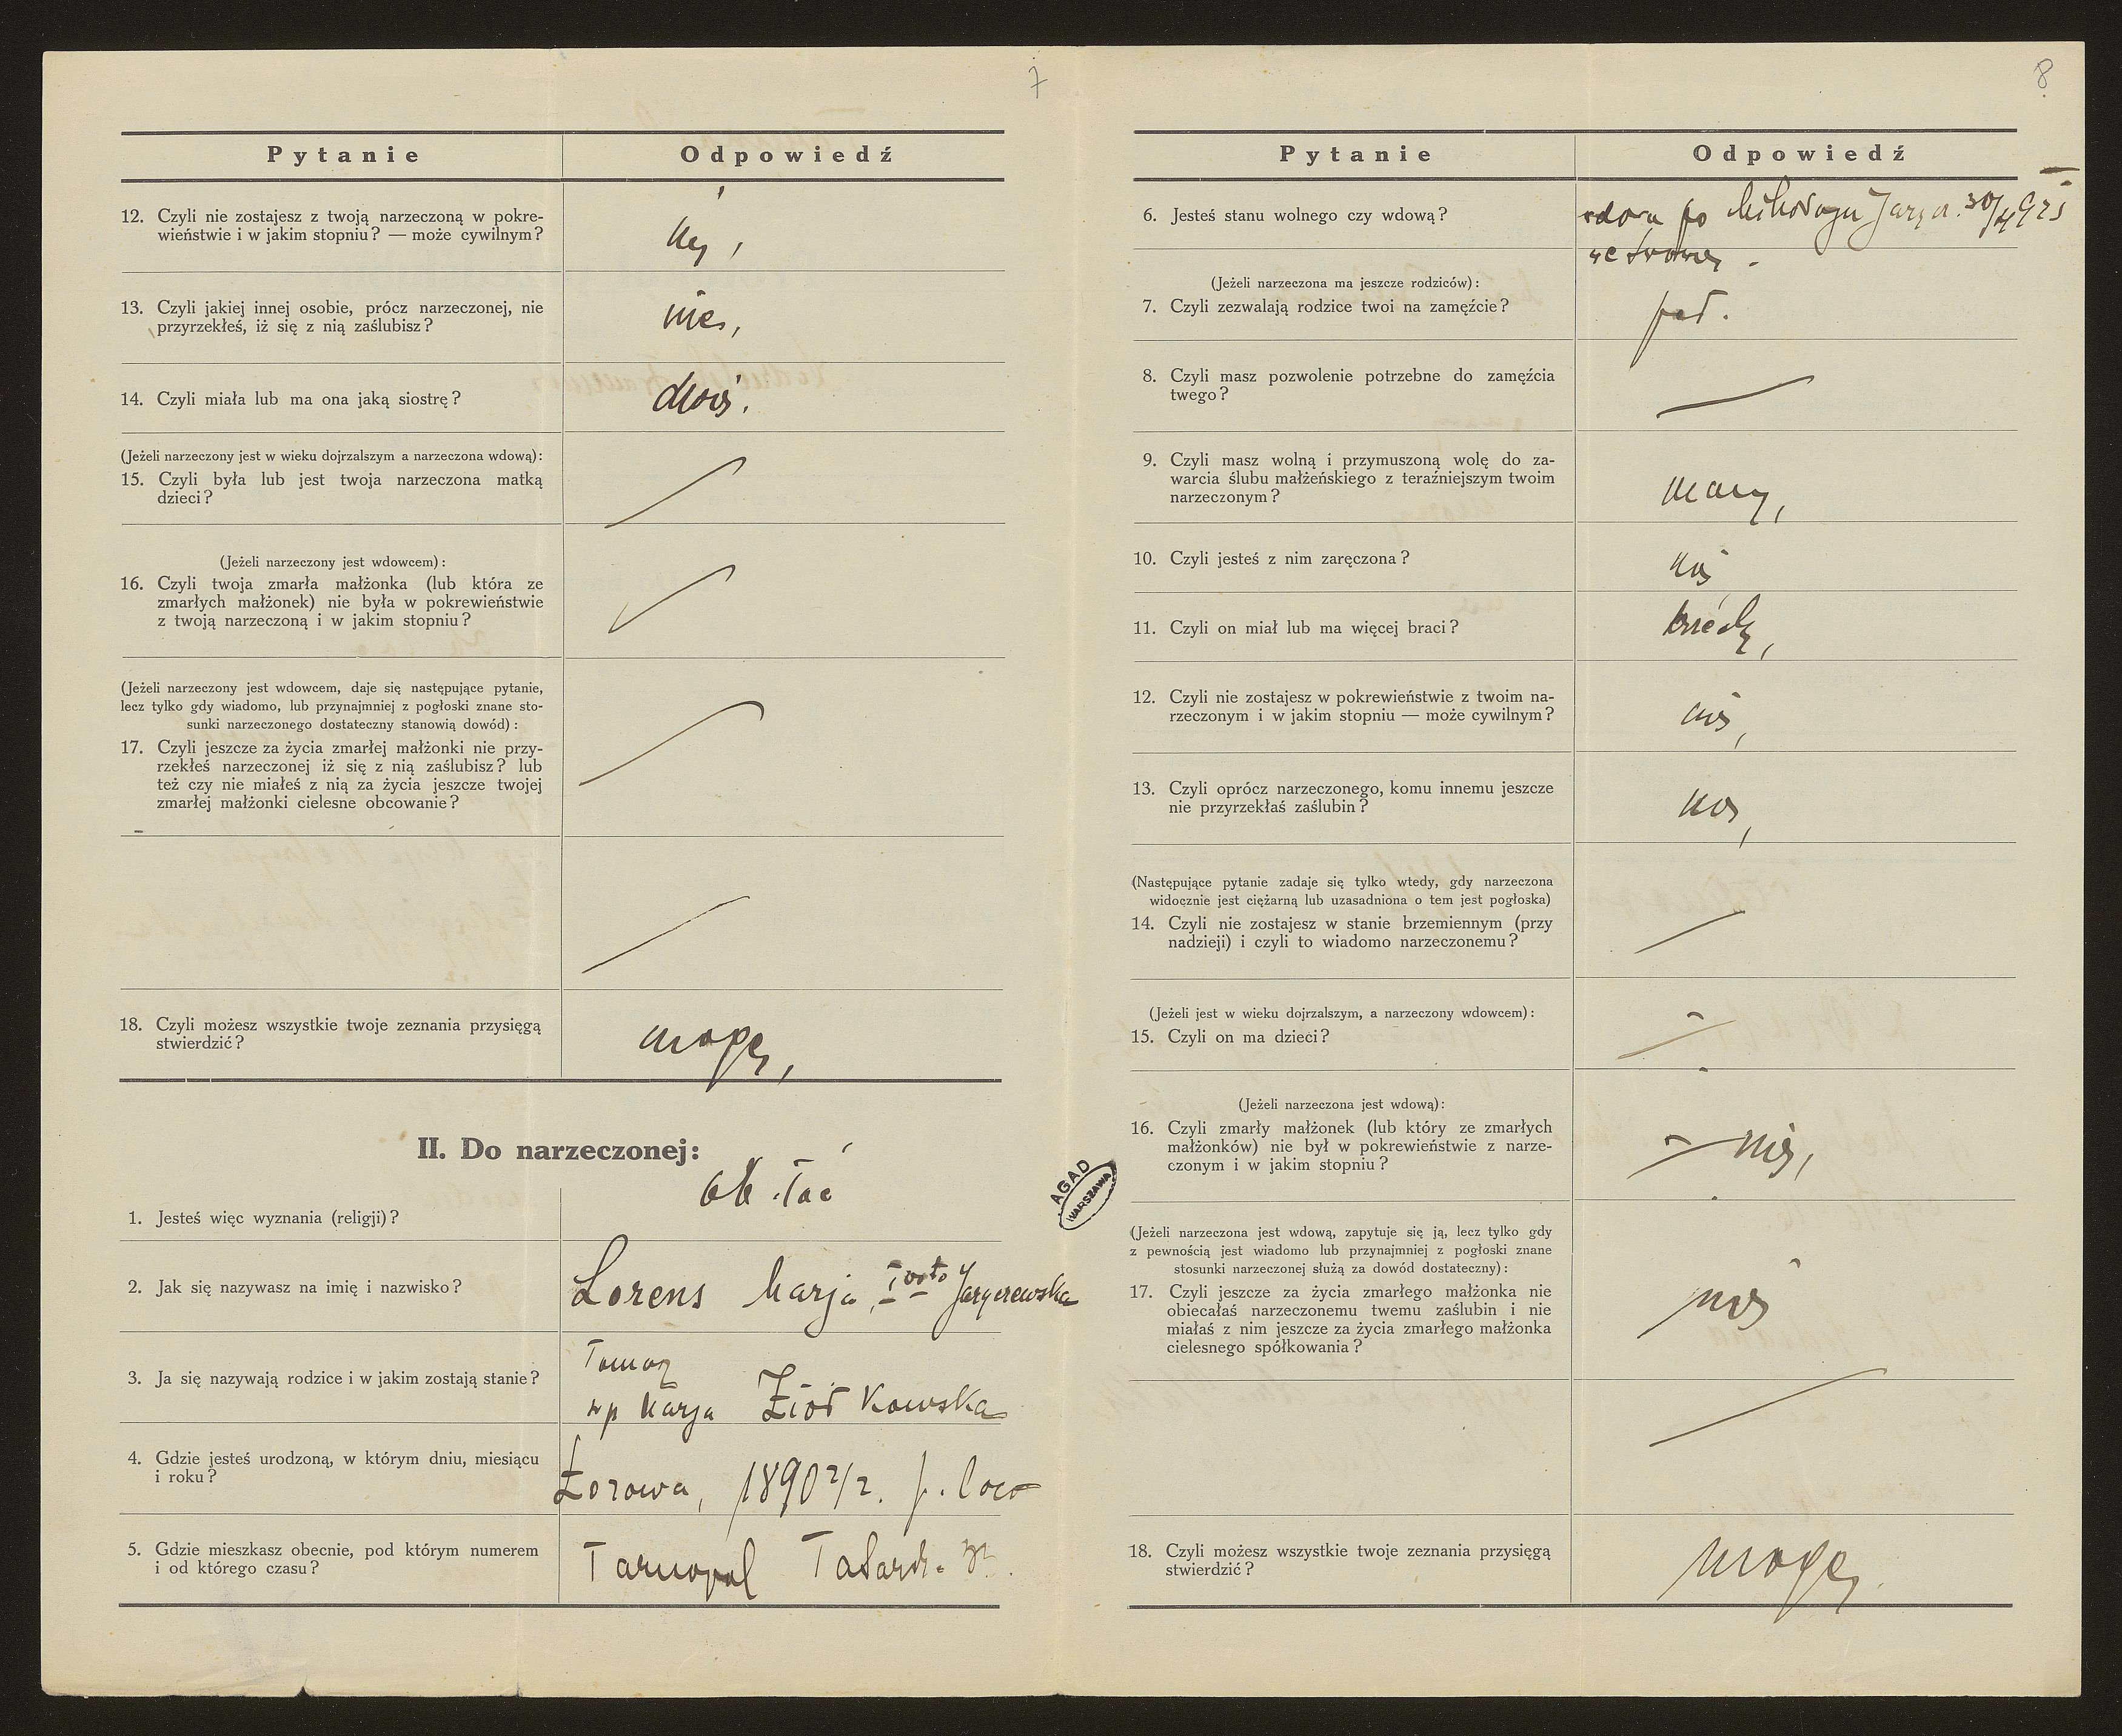 7
Pytanie Odpowiedź
12. Czyli nie zostajesz z twoją narzeczoną w pokre-
wieństwie i w jakim stopniu? — może cywilnym?
13. Czyli jakiej innej osobie, prócz narzeczonej, nie
przyrzekłeś, iż się z nią zaślubisz?
nie,
14. Czyli miała lub ma ona jaką siostrę?
(Jeżeli narzeczony jest w wieku dojrzalszym a narzeczona wdową):
15. Czyli była lub jest twoja narzeczona matką
dzieci?
(Jeżeli narzeczony jest wdowcem):
16. Czyli twoja zmarła małżonka (lub która ze
zmarłych małżonek) nie była w pokrewieństwie
z twoją narzeczoną i w jakim stopniu?
(Jeżeli narzeczony jest wdowcem, daje się następujące pytanie,
lecz tylko gdy wiadomo, lub przynajmniej z pogłoski znane sto-
sunki narzeczonego dostateczny stanowią dowód):
17. Czyli jeszcze za życia zmarłej małżonki nie przy-
rzekłeś narzeczonej iż się z nią zaślubisz? lub
też czy nie miałeś z nią za życia jeszcze twojej
zmarłej małżonki cielesne obcowanie?
18. Czyli możesz wszystkie twoje zeznania przysięgą
stwierdzić?
mogę,
II. Do narzeczonej:
1. Jesteś więc wyznania (religji)?
ob. łac
2. Jak się nazywasz na imię i nazwisko?
Lorens Marja, I voto Jarczewska
3. Ja się nazywają rodzice i w jakim zostają stanie?
Tomasz
śp Marja Ziółkowska
4. Gdzie jesteś urodzoną, w którym dniu, miesiącu
i roku?
1890 2/2. p. loco
5. Gdzie mieszkasz obecnie, pod którym numerem
i od którego czasu?
Tarnopol
AGAD
WARSZAWA
8
Pytanie Odpowiedź
6. Jesteś stanu wolnego czy wdową?
wdowa po Mikołaju
(Jeżeli narzeczona ma jeszcze rodziców):
7. Czyli zezwalają rodzice twoi na zamęźcie?
8. Czyli masz pozwolenie potrzebne do zamęźcia
twego?
9. Czyli masz wolną i przymuszoną wolę do za-
warcia ślubu małżeńskiego z teraźniejszym twoim
narzeczonym?
mam,
10. Czyli jesteś z nim zaręczona?
11. Czyli on miał lub ma więcej braci?
12. Czyli nie zostajesz w pokrewieństwie z twoim na-
rzeczonym i w jakim stopniu — może cywilnym?
nie,
13. Czyli oprócz narzeczonego, komu innemu jeszcze
nie przyrzekłaś zaślubin?
nie,
(Następujące pytanie zadaje się tylko wtedy, gdy narzeczona
widocznie jest ciężarną lub uzasadniona o tem jest pogłoska)
14. Czyli nie zostajesz w stanie brzemiennym (przy
nadzieji) i czyli to wiadomo narzeczonemu?
(Jeżeli jest w wieku dojrzalszym, a narzeczony wdowcem):
15. Czyli on ma dzieci?
(Jeżeli narzeczona jest wdową):
16. Czyli zmarły małżonek (lub który ze zmarłych
małżonków) nie był w pokrewieństwie z narze-
czonym i w jakim stopniu?
nie,
(Jeżeli narzeczona jest wdową, zapytuje się ją, lecz tylko gdy
z pewnością jest wiadomo lub przynajmniej z pogłoski znane
stosunki narzeczonej służą za dowód dostateczny):
17. Czyli jeszcze za życia zmarłego małżonka nie
obiecałaś narzeczonemu twemu zaślubin i nie
miałaś z nim jeszcze za życia zmarłego małżonka
cielesnego spółkowania?
nie
18. Czyli możesz wszystkie twoje zeznania przysięgą
stwierdzić?
mogę.